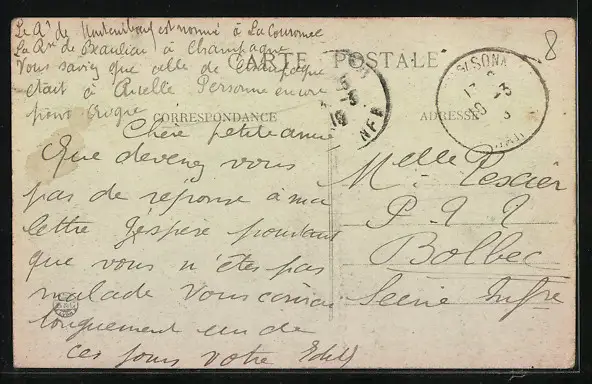 Le Ad de est nommé à La Couronne
Le Rre de Beaulieu à Champagne
Vous savez que celle de Champagne
était à Ruelle Personne encore
pour Brogne
CARTE POSTALE
CORRESPONDANCE
ADRESSE
8
SISSONNE
17
10 - 3
Chère petite amie
Que devenez vous
pas de réponse à ma
lettre J'espère pourtant
que vous n'êtes pas
malade Vous causerai
longuement un de
ces jours Votre Edith
Melle Tessier
P. T. T
Bolbec
Seine Infre